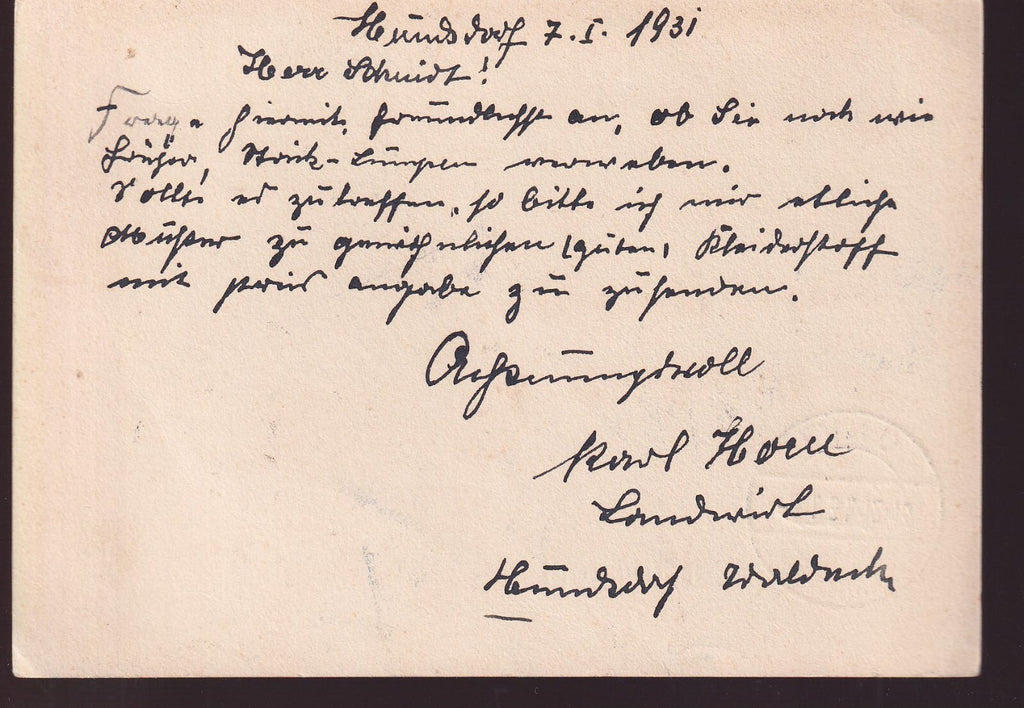 Hundsdorf 7.I. 1931
Herr Schmidt!
Frage hiermit, freundlichst an, ob Sie noch wie
früher, Strick-Lumpen verweben.
Sollte es zutreffen, so bitte ich mir etliche
Muster zu gewöhnlichen (guten) Kleiderstoff
mit preis angabe zu zusenden.
Achtungsvoll
Karl Horn
Landwirt
Hundsdorf Waldeck